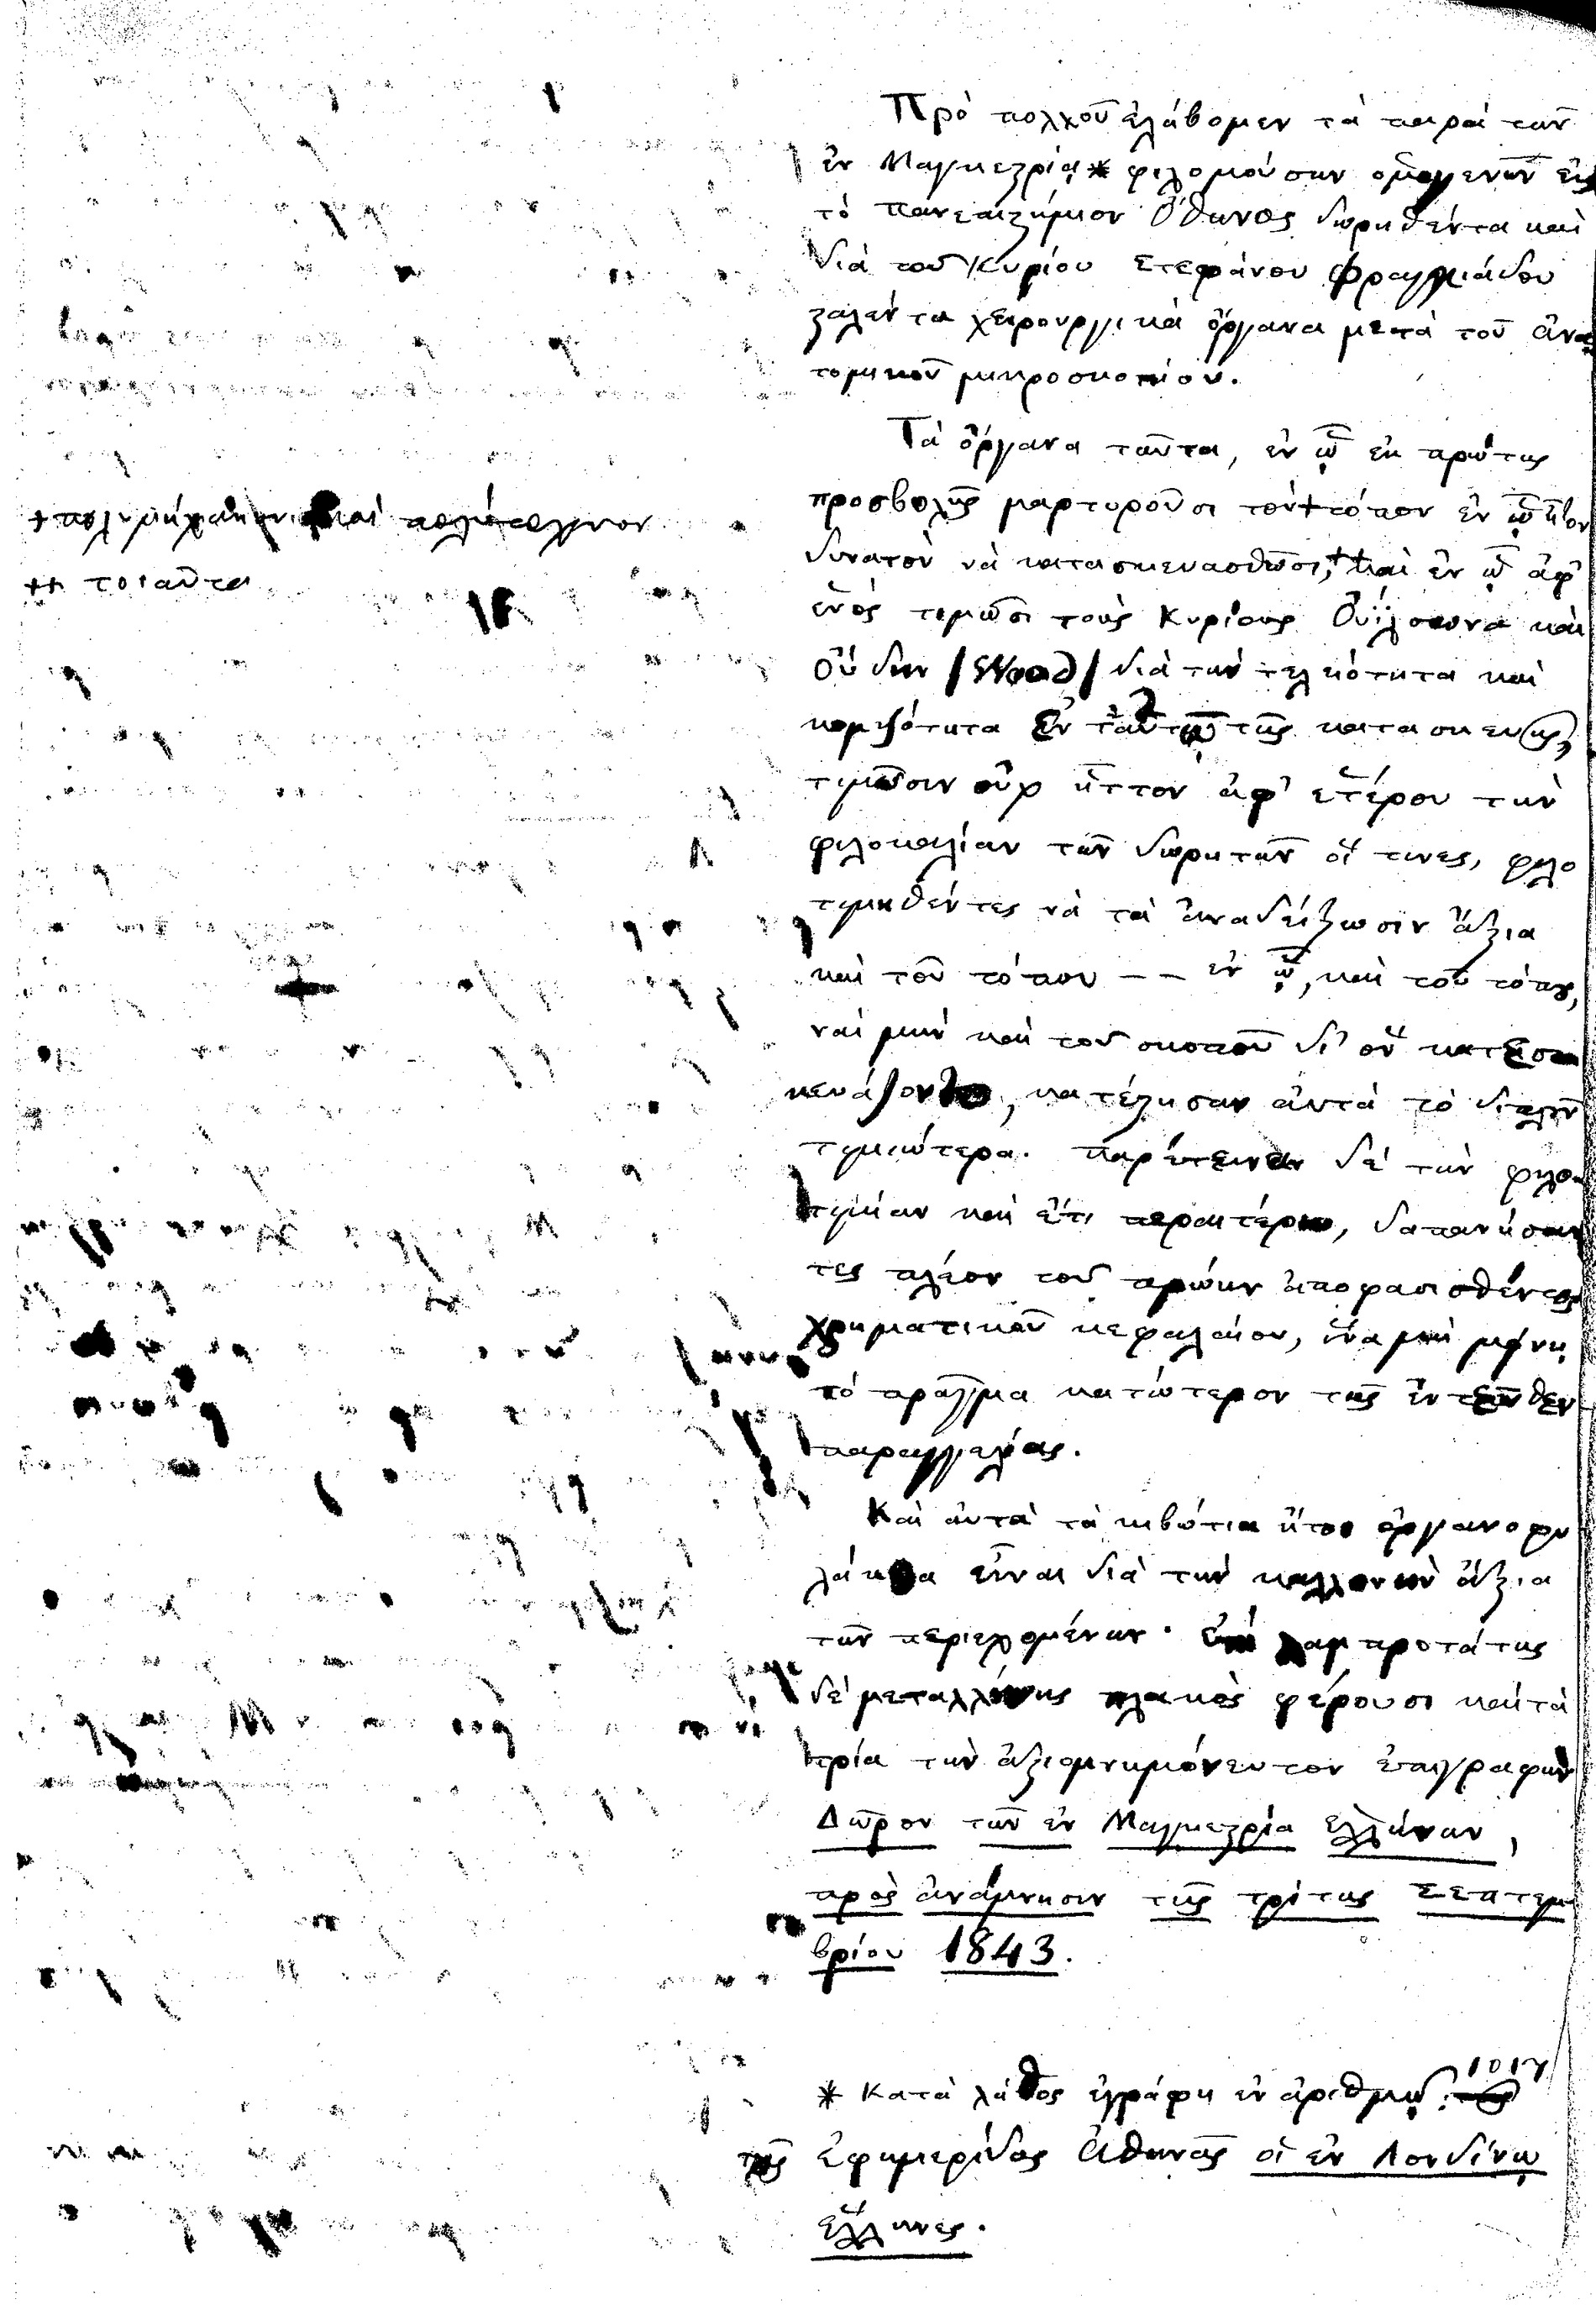 Πρὸ πολλοῦ ἐλάβομεν τὰ παρὰ τῶν
ἐν Μαγκεστρίᾳ * φιλομούσων ὁμογενῶν εἰς
τὸ πανεπιστήμιον Ὄθωνος δωρηθέντα καὶ
διὰ τοῦ Κυρίου Στεφάνου Φραγγιάδου
σταλέντα χειρουργικὰ ὄργανα μετὰ τοῦ ἀνα
τομικοῦ μικροσκοπίου.
Τὰ ὄργανα ταῦτα, ἐν ᾧ ἐκ πρώτης
προσβολῆς μαρτυροῦσι τὸν + τόπον ἐν ᾧ ἦτον
δυνατὸν νὰ κατασκευασθῶσι, ++ καὶ ἐν ᾧ ἀφ'
ἑνὸς τιμῶσι τοὺς Κυρίους Οὐΐλσωνα καὶ
Οὐδην /Wood/ διὰ τὴν τελειότητα καὶ
κομψότητα ἐν ταὐτῷ τῆς κατασκευῆς,
τιμῶσιν οὐχ ἧττον ἀφ' ἑτέρου τὴν
φιλοκαλίαν τῶν δωρητῶν οἵ τινες, φιλο
τιμηθέντες νὰ τὰ ἀναδείξωσιν ἄξια
καὶ τοῦ τόπου -- ἐν ᾧ, καὶ τοῦ τόπου,
ναὶ μὴν καὶ τοῦ σκοποῦ δι' ὃν κατεσ
κευάζοντο, κατέστησαν αὐτὰ τὸ διπλοῦν
τιμιώτερα. Παρέτειναν δὲ τὴν φιλο
τιμίαν καὶ ἔτι περαιτέρω, δαπανήσαν
τες πλέον τοῦ πρώην ἀποφασισθέντος
χρηματικοῦ κεφαλαίου, ἵνα μὴ μείνῃ
τὸ πρᾶγμα κατώτερον τῆς ἐντεῦθεν
παραγγελίας.
Καὶ αὐτὰ τὰ κιβώτια ἤτοι ὀργανοφυ
λάκια εἶναι διὰ τὴν καλλονὴν ἄξια
τῶν περιεχομένων· ἐπὶ λαμπροτάτης
δὲ μεταλλίνης πλακὸς φέρουσι καὶ τὰ
τρία τὴν ἀξιομνημόνευτον ἐπιγραφὴν
Δῶρον τῶν ἐν Μαγκεστρίᾳ Ἑλλήνων,
πρὸς ἀνάμνησιν τῆς τρίτης Σεπτεμ
βρίου 1843.
* Κατὰ λάθος ἐγράφη ἐν ἀριθμῷ 1017
τῆς ἐφημερίδος Ἀθηνᾶς οἱ ἐν Λονδίνῳ
Ἕλληνες.
+ πολυμήχανον καὶ πολύτεχνον
++ τοιαῦτα